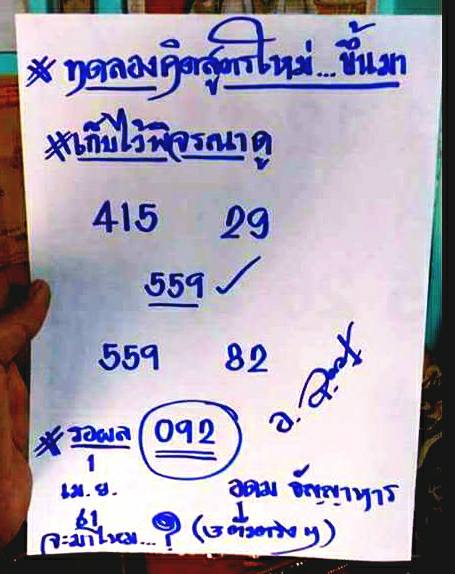 * ทดลองคิดสูตรใหม่...ขึ้นมา
#เก็บไว้พิจรณาดู
415 29
559 ✓
559 82
* รอผล 092
1
เม.ย.
61
จะมาไหม...?
อุดม ธัญญาหาร
(3 ตัวตรง ๆ)